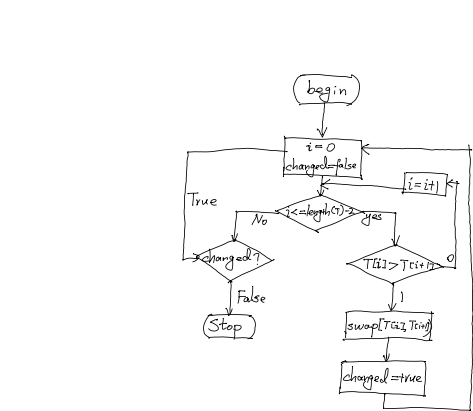 begin
i = 0
changed=false
i=i+1
i<=length(T)-2
No
yes
True
changed?
T[i]>T[i+1]
0
1
False
Stop
swap[T[i],T[i+1]
changed=true